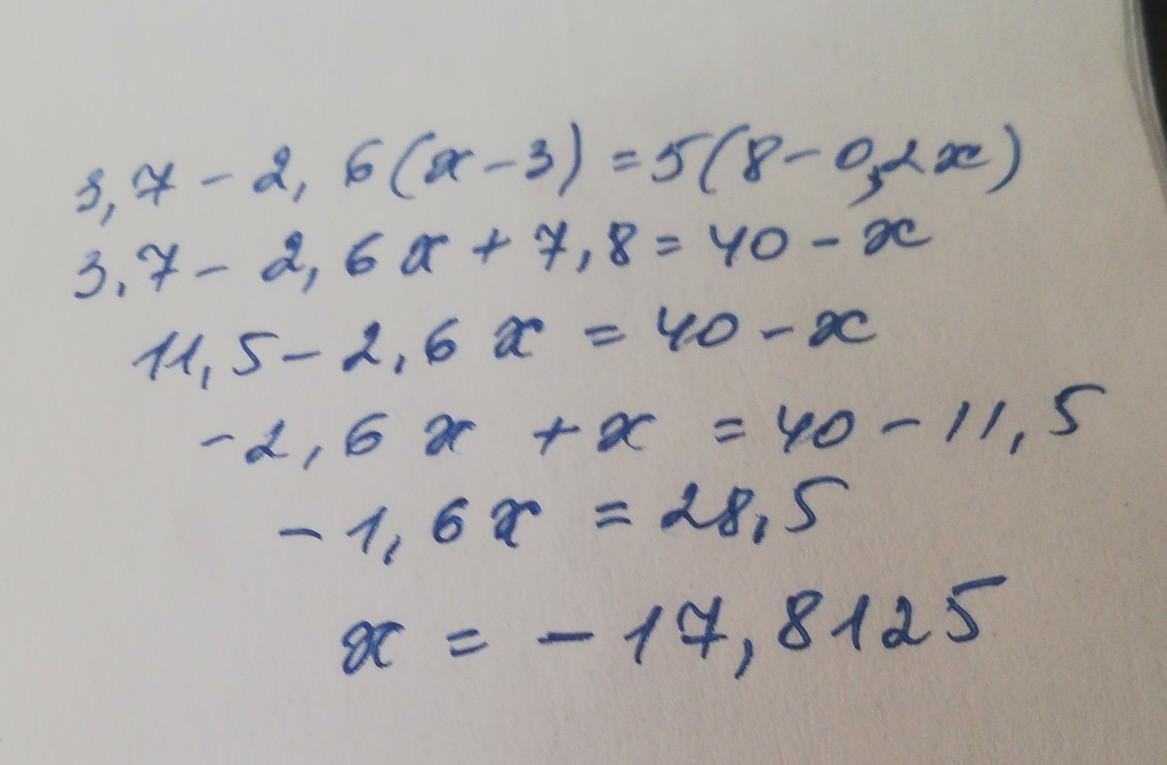 3,7 - 2,6(x - 3) = 5(8 - 0,2x)
3,7 - 2,6x + 7,8 = 40 - x
11,5 - 2,6x = 40 - x
-2,6x + x = 40 - 11,5
-1,6x = 28,5
x = -17,8125